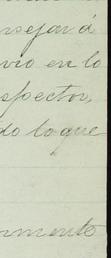 nsejar á
vio en lo
spector,
do lo que
rmente